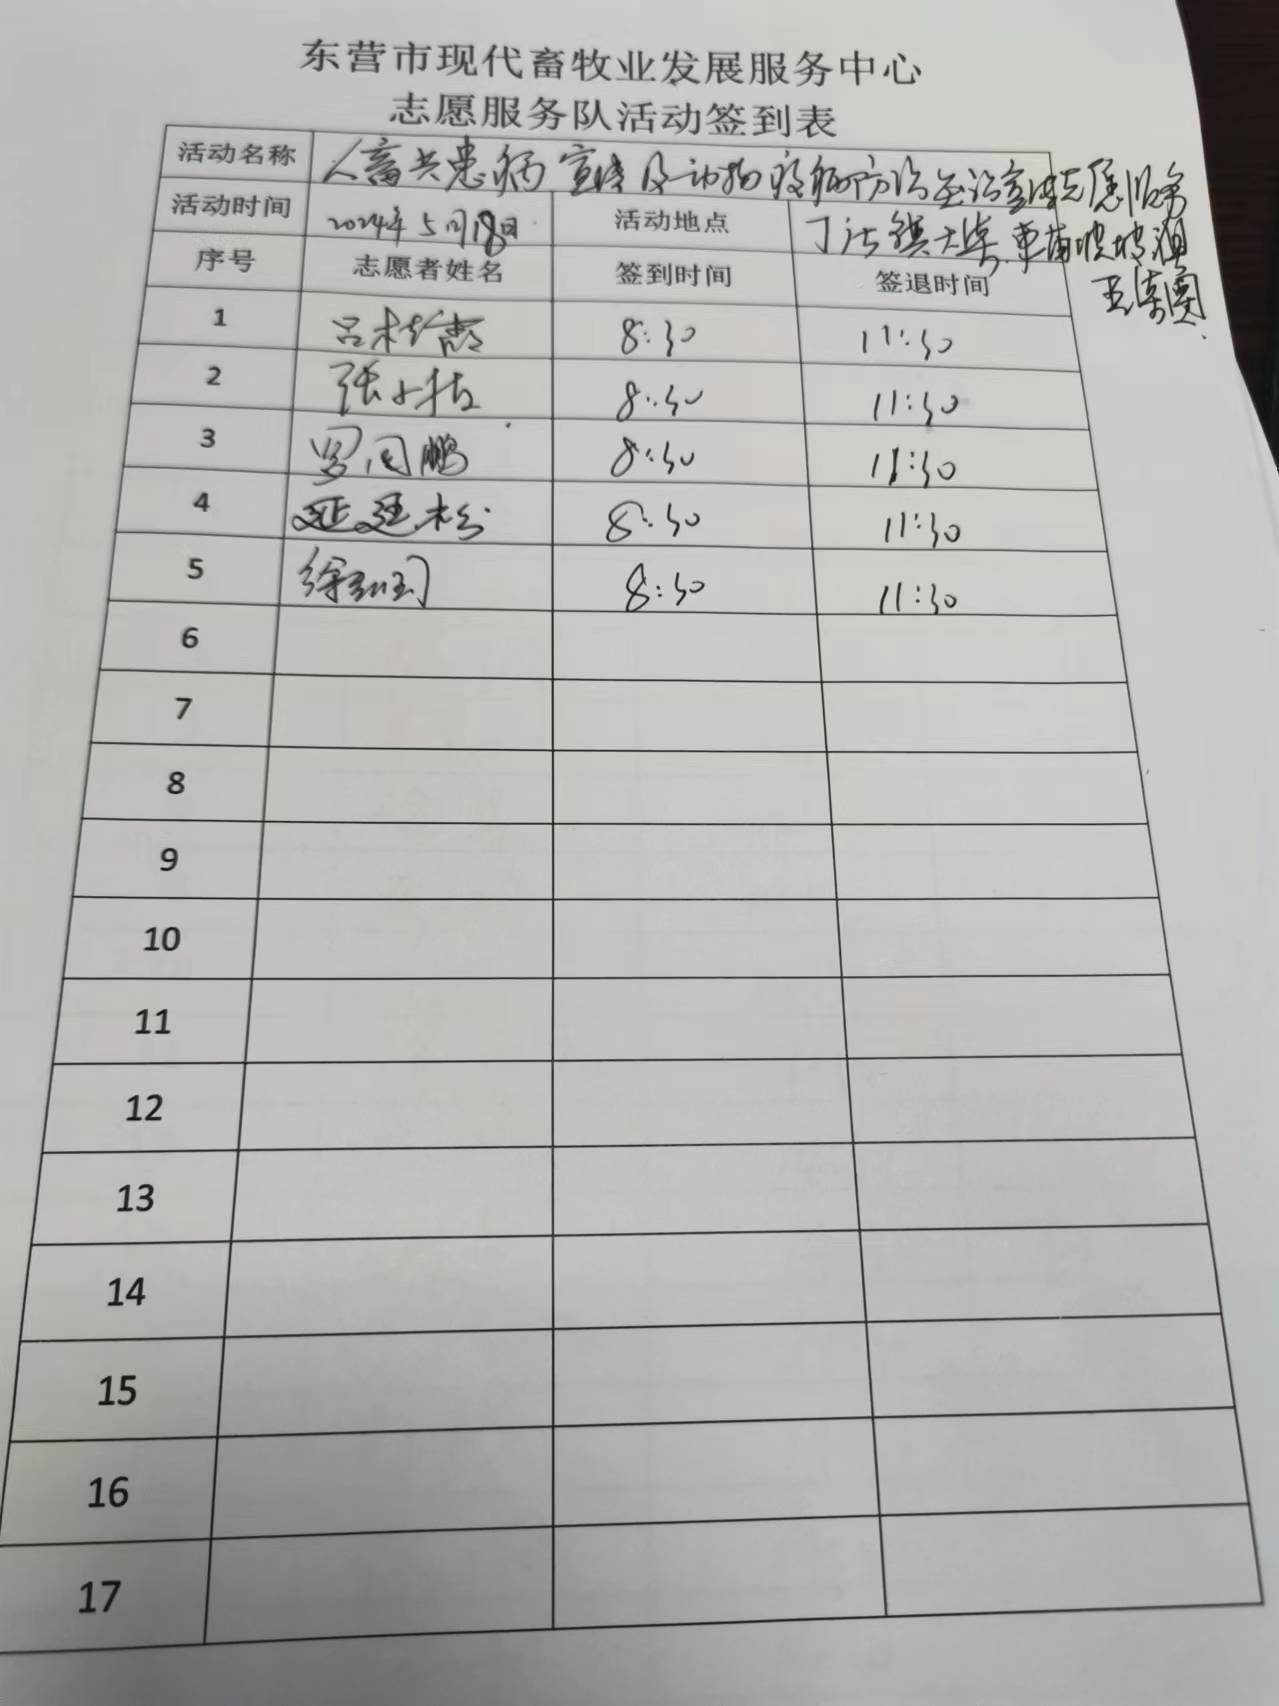 东营市现代畜牧业发展服务中心
志愿服务队活动签到表
活动名称 人畜共患病宣传及动物疫病防治 志愿服务
活动时间 2024年5月18日 活动地点 丁庄镇
序号 志愿者姓名 签到时间 签退时间
1 吕 8:30 11:30
2 张 8:30 11:30
3 罗同鹏 8:30 11:30
4 延廷 8:30 11:30
5 徐 8:30 11:30
6
7
8
9
10
11
12
13
14
15
16
17